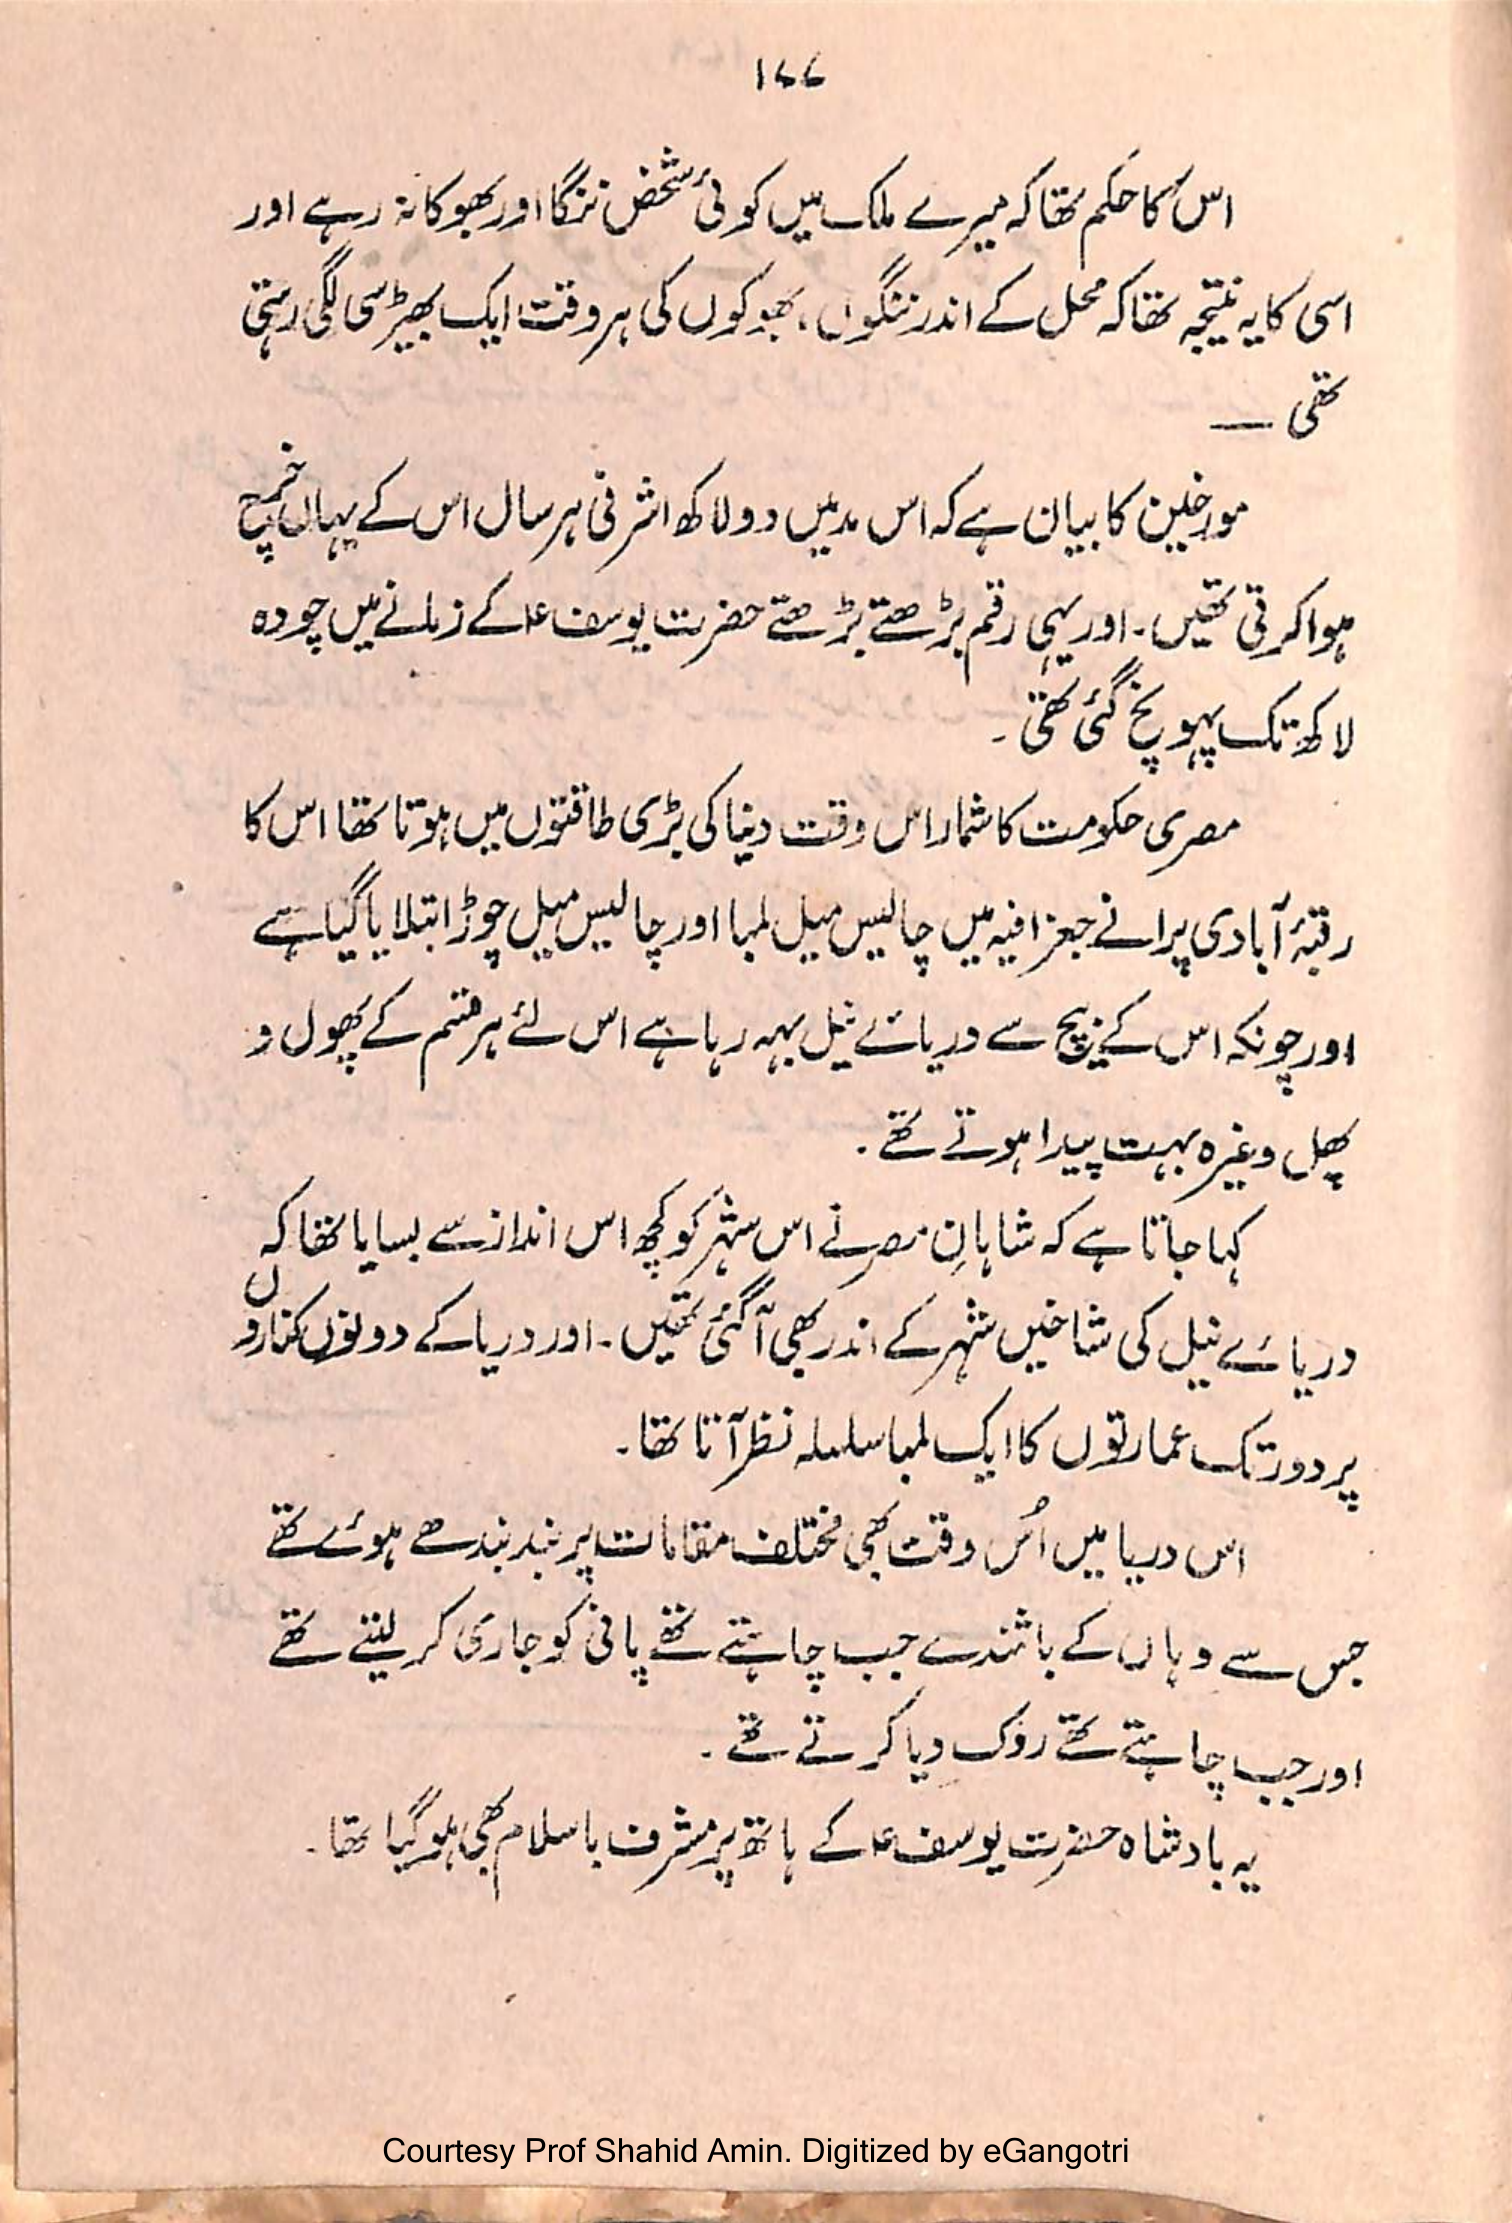 ۱۷۷
اس کا حکم تھا کہ میرے ملک میں کوئی شخص ننگا اور بھوکا نہ رہے اور
اسی کا یہ نتیجہ تھا کہ محل کے اندر ننگوں، بھوکوں کی ہر وقت ایک بھیڑ سی لگی رہتی
تھی —
مورخین کا بیان ہے کہ اس مد میں دو لاکھ اشرفی ہر سال اس کے یہاں خرچ
ہوا کرتی تھیں۔ اور یہی رقم بڑھتے بڑھتے حضرت یوسف ؑ کے زمانے میں چودہ
لاکھ تک پہونچ گئی تھی۔
مصری حکومت کا شمار اس وقت دنیا کی بڑی طاقتوں میں ہوتا تھا اس کا
رقبۂ آبادی پرانے جغرافیہ میں چالیس میل لمبا اور چالیس میل چوڑا بتلایا گیا ہے
اور چونکہ اس کے بیچ سے دریائے نیل بہہ رہا ہے اس لئے ہر قسم کے پھول و
پھل وغیرہ بہت پیدا ہوتے تھے۔
کہا جاتا ہے کہ شاہانِ مصر نے اس شہر کو کچھ اس انداز سے بسایا تھا کہ
دریائے نیل کی شاخیں شہر کے اندر بھی آگئی تھیں۔ اور دریا کے دونوں کناروں
پر دور تک عمارتوں کا ایک لمبا سلسلہ نظر آتا تھا۔
اس دریا میں اُس وقت بھی مختلف مقامات پر بند بندھے ہوئے تھے
جس سے وہاں کے باشندے جب چاہتے تھے پانی کو جاری کر لیتے تھے
اور جب چاہتے تھے روک دیا کرتے تھے۔
یہ بادشاہ حضرت یوسف ؑ کے ہاتھ پر مشرف باسلام بھی ہوگیا تھا۔
Courtesy Prof Shahid Amin. Digitized by eGangotri